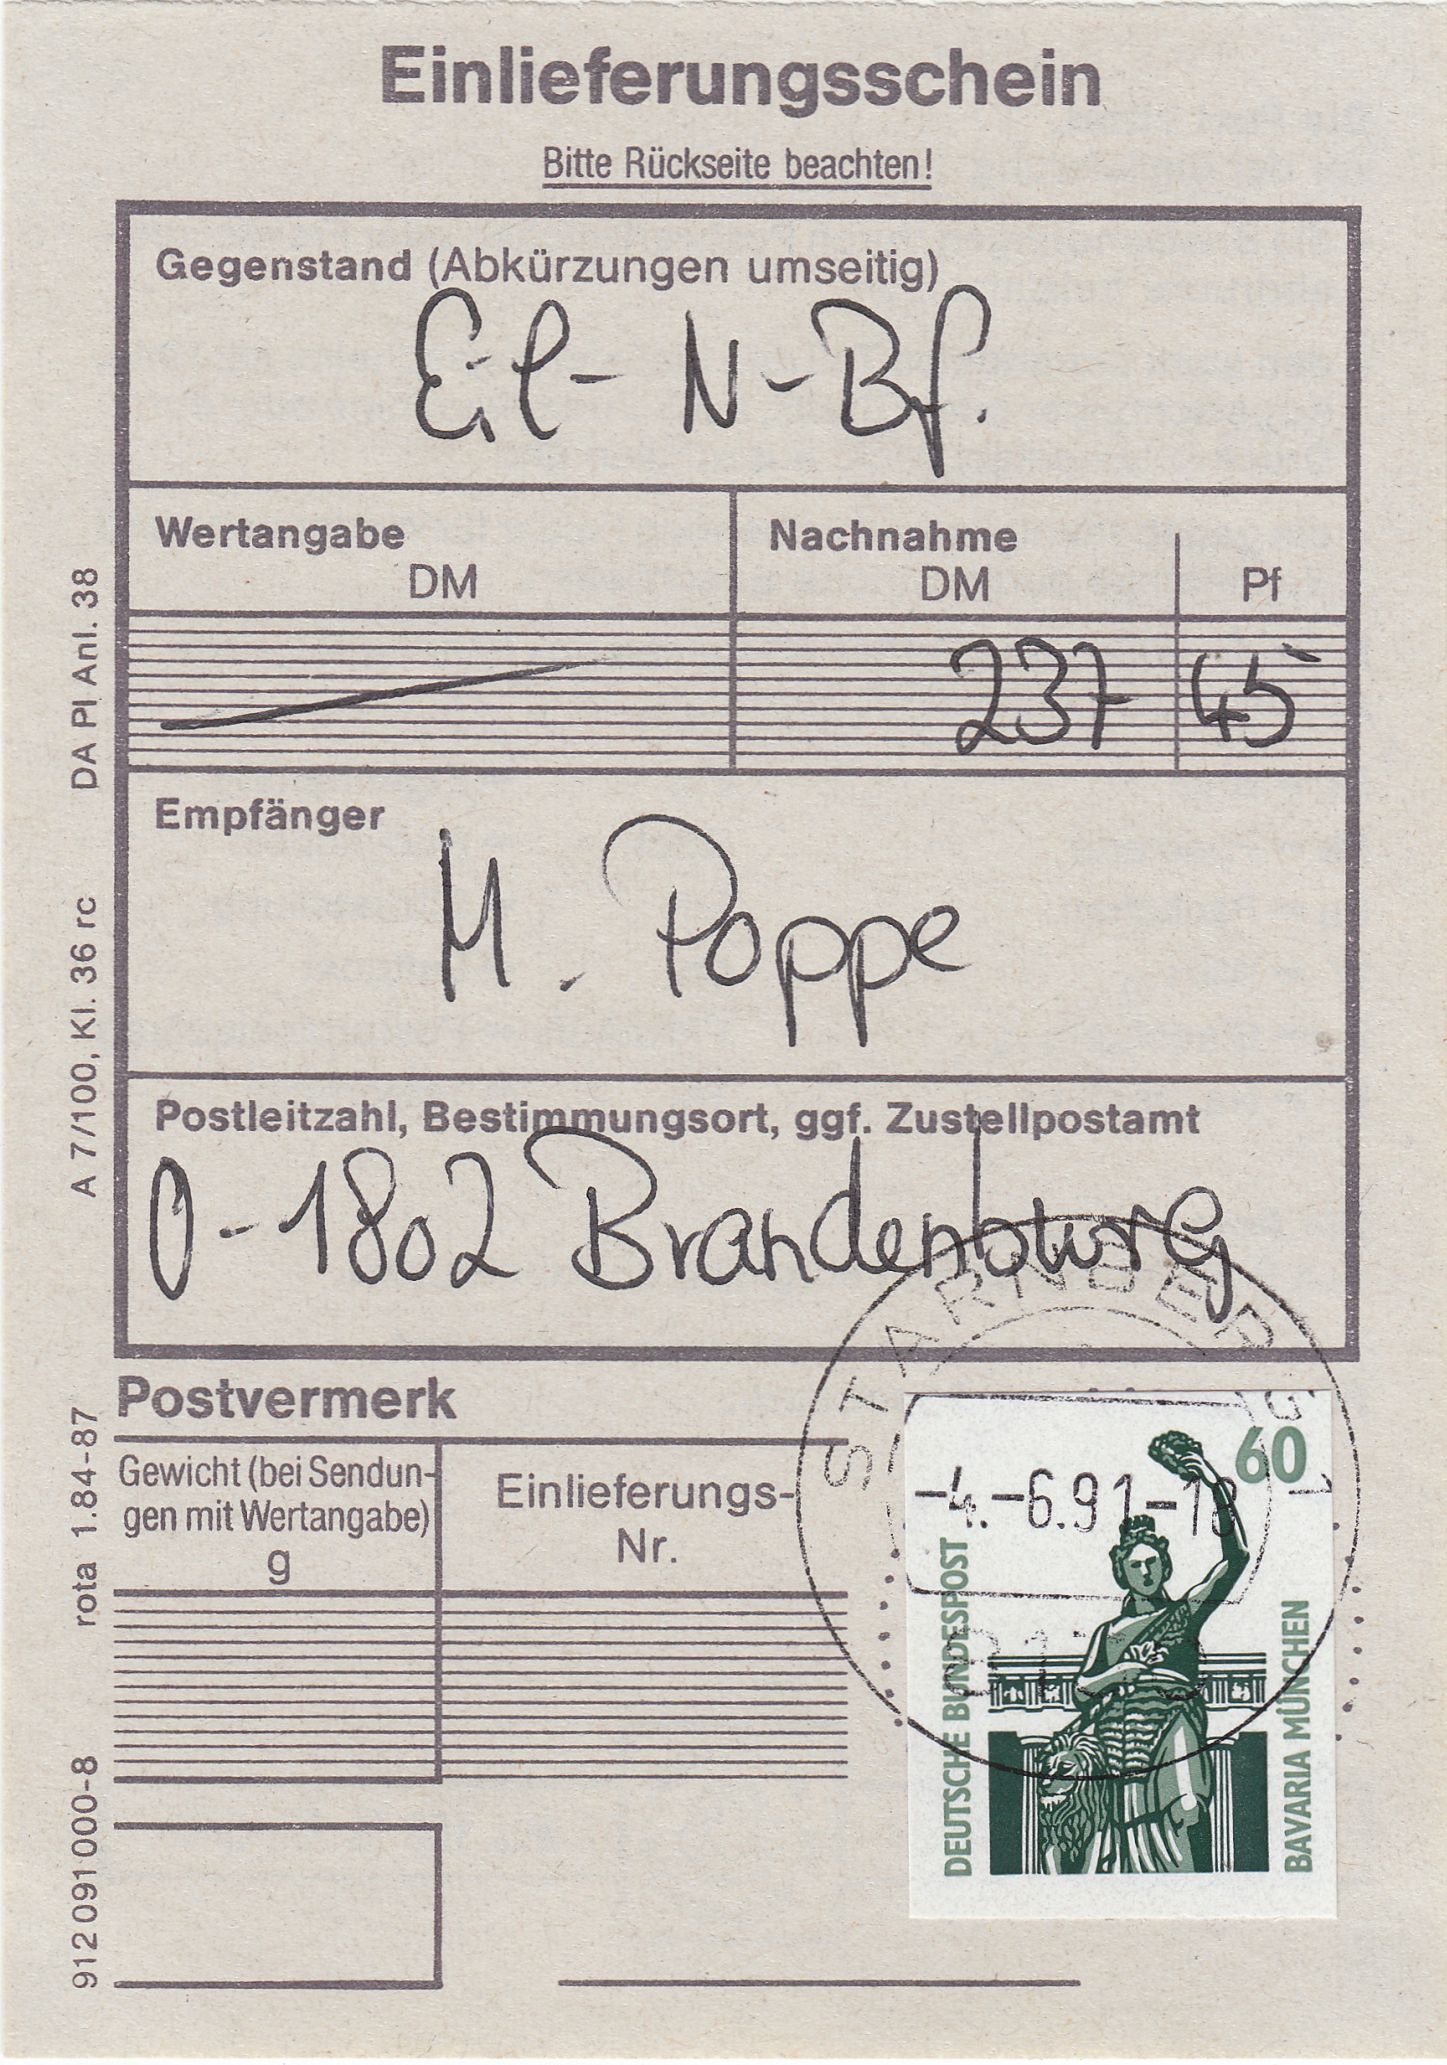 Einlieferungsschein
Bitte Rückseite beachten!
Gegenstand (Abkürzungen umseitig)
Eil- N-Bf.
Wertangabe
DM
Nachnahme
DM
Pf
237
45
Empfänger
M. Poppe
Postleitzahl, Bestimmungsort, ggf. Zustellpostamt
O-1802 Brandenburg
Postvermerk
Gewicht (bei Sendun-
gen mit Wertangabe)
g
Einlieferungs-
Nr.
STARNBERG 1
-4.-6.91-18
60
DEUTSCHE BUNDESPOST
BAVARIA MÜNCHEN
912 091 000-8
rota 1.84-87
A 7/100, Kl. 36 rc
DA PI Anl. 38